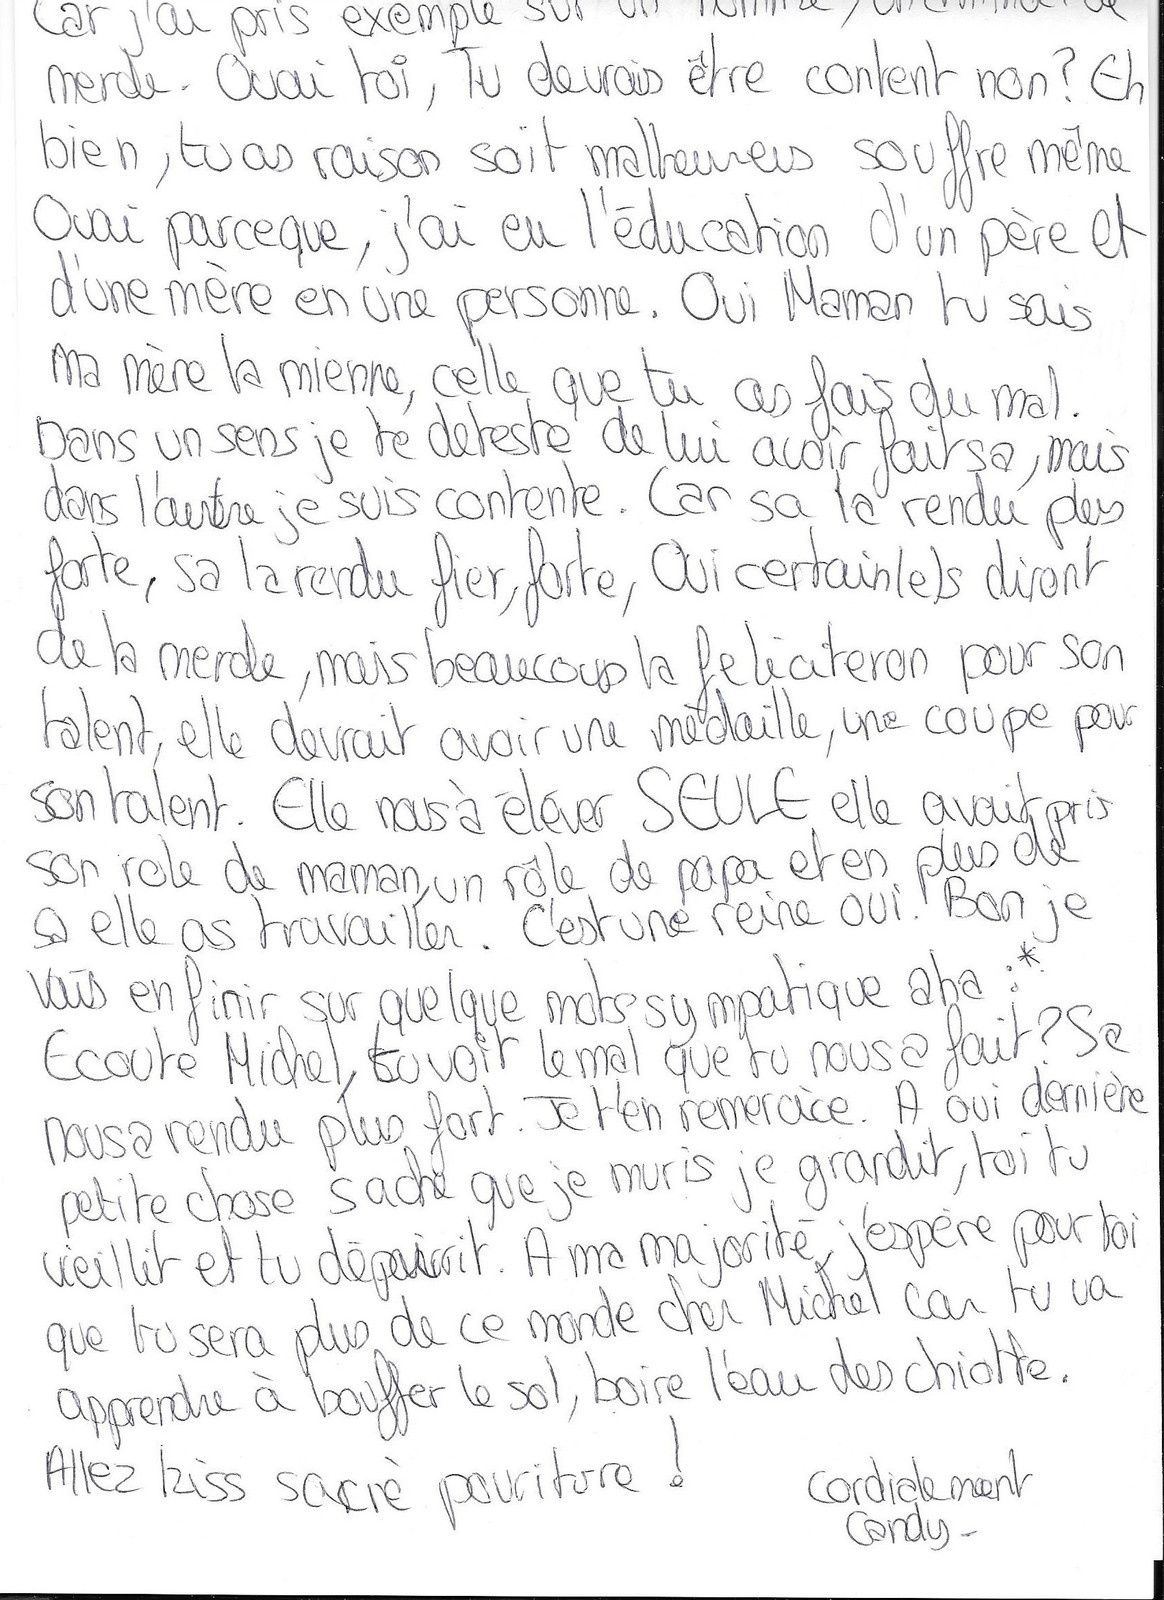 Car j'ai pris exemple sur un homme,
merde. Ouai toi, Tu devrais être content non? Eh
bien, tu as raison soit malheureus souffre même
Ouai parceque, j'ai eu l'éducation d'un père et
d'une mère en une personne. Oui Maman tu sais
ma mère la mienne, celle que tu as fais du mal.
Dans un sens je te deteste de lui avoir fait sa, mais
dans l'autre je suis contente. Car sa la rendu plus
forte, sa la rendu fier, forte, Oui certain(e)s diront
de la merde, mais beaucoup la feliciteron pour son
talent, elle devrait avoir une médaille, une coupe pour
son talent. Elle nous à élever SEULE elle avait pris
son role de maman, un rôle de papa et en plus de
sa elle as travailler. C'est une reine oui! Bon je
vais en finir sur quelque mots sympatique aha :*
Ecoute Michel, tu voit le mal que tu nous a fait? Sa
nous a rendu plus fort. Je t'en remercice. A oui dernière
petite chose sache que je muris je grandit, toi tu
vieillit et tu dépairrit. A ma majorité, j'espère pour toi
que tu sera plus de ce monde cher Michel car tu va
apprendre à bouffer le sol, boire l'eau des chiotte.
Allez kiss sacré pouriture !
Cordialement
Candy-